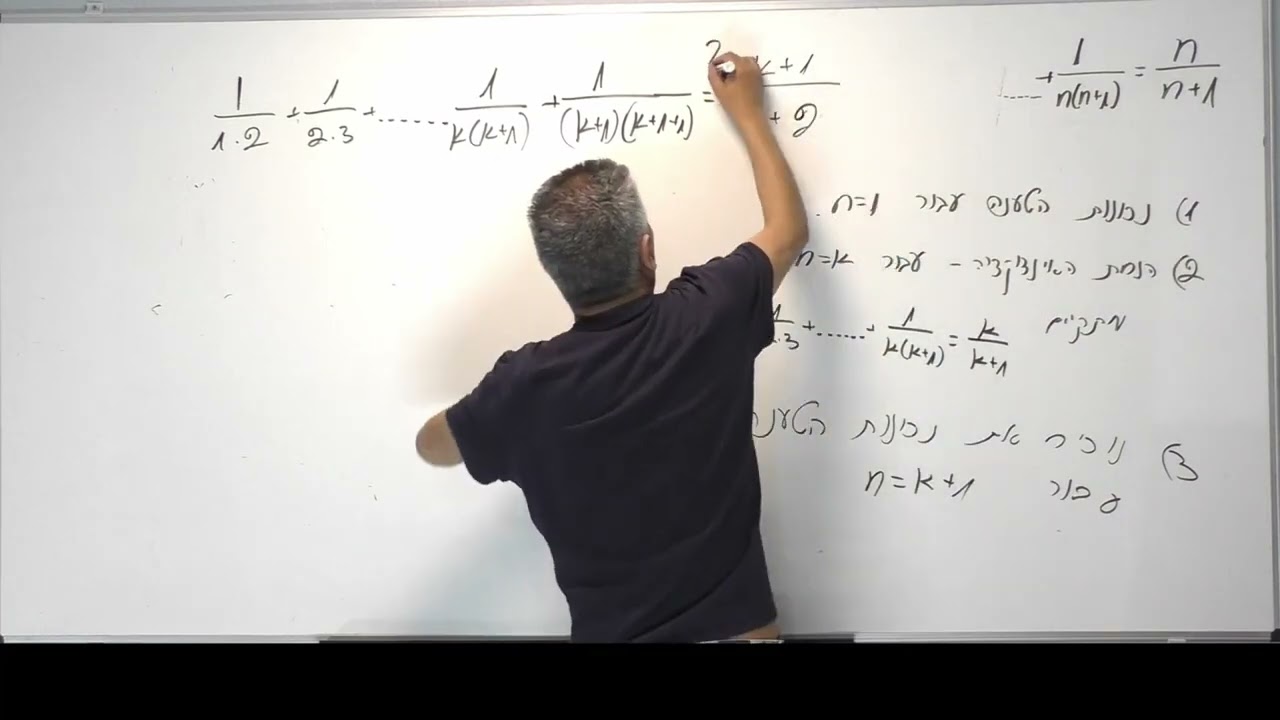 1/(1·2) + 1/(2·3) + ...... 1/(k(k+1)) + 1/((k+1)(k+1+1)) =? k+1/ +2
..... + 1/(n(n+1)) = n/(n+1)
1) נכונות הטענה עבור n=1.
2) הנחת האינדוקציה - עבור n=k
מתקיים
1/ .3 + ...... + 1/(k(k+1)) = k/(k+1)
3) נוכיח את נכונות הטענה
עבור n=k+1